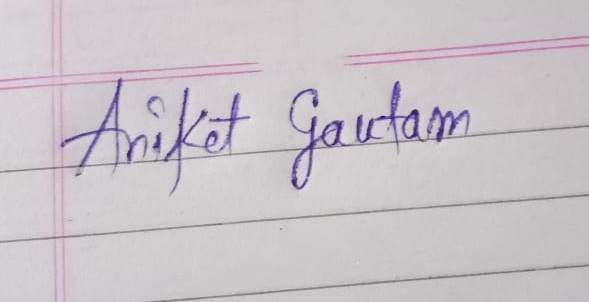 Aniket Gautam